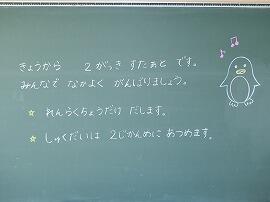 きょうから 2がっき すたあと です。
みんなで なかよく がんばりましょう。
☆ れんらくちょうだけ だします。
☆ しゅくだいは 2じかんめに あつめます。